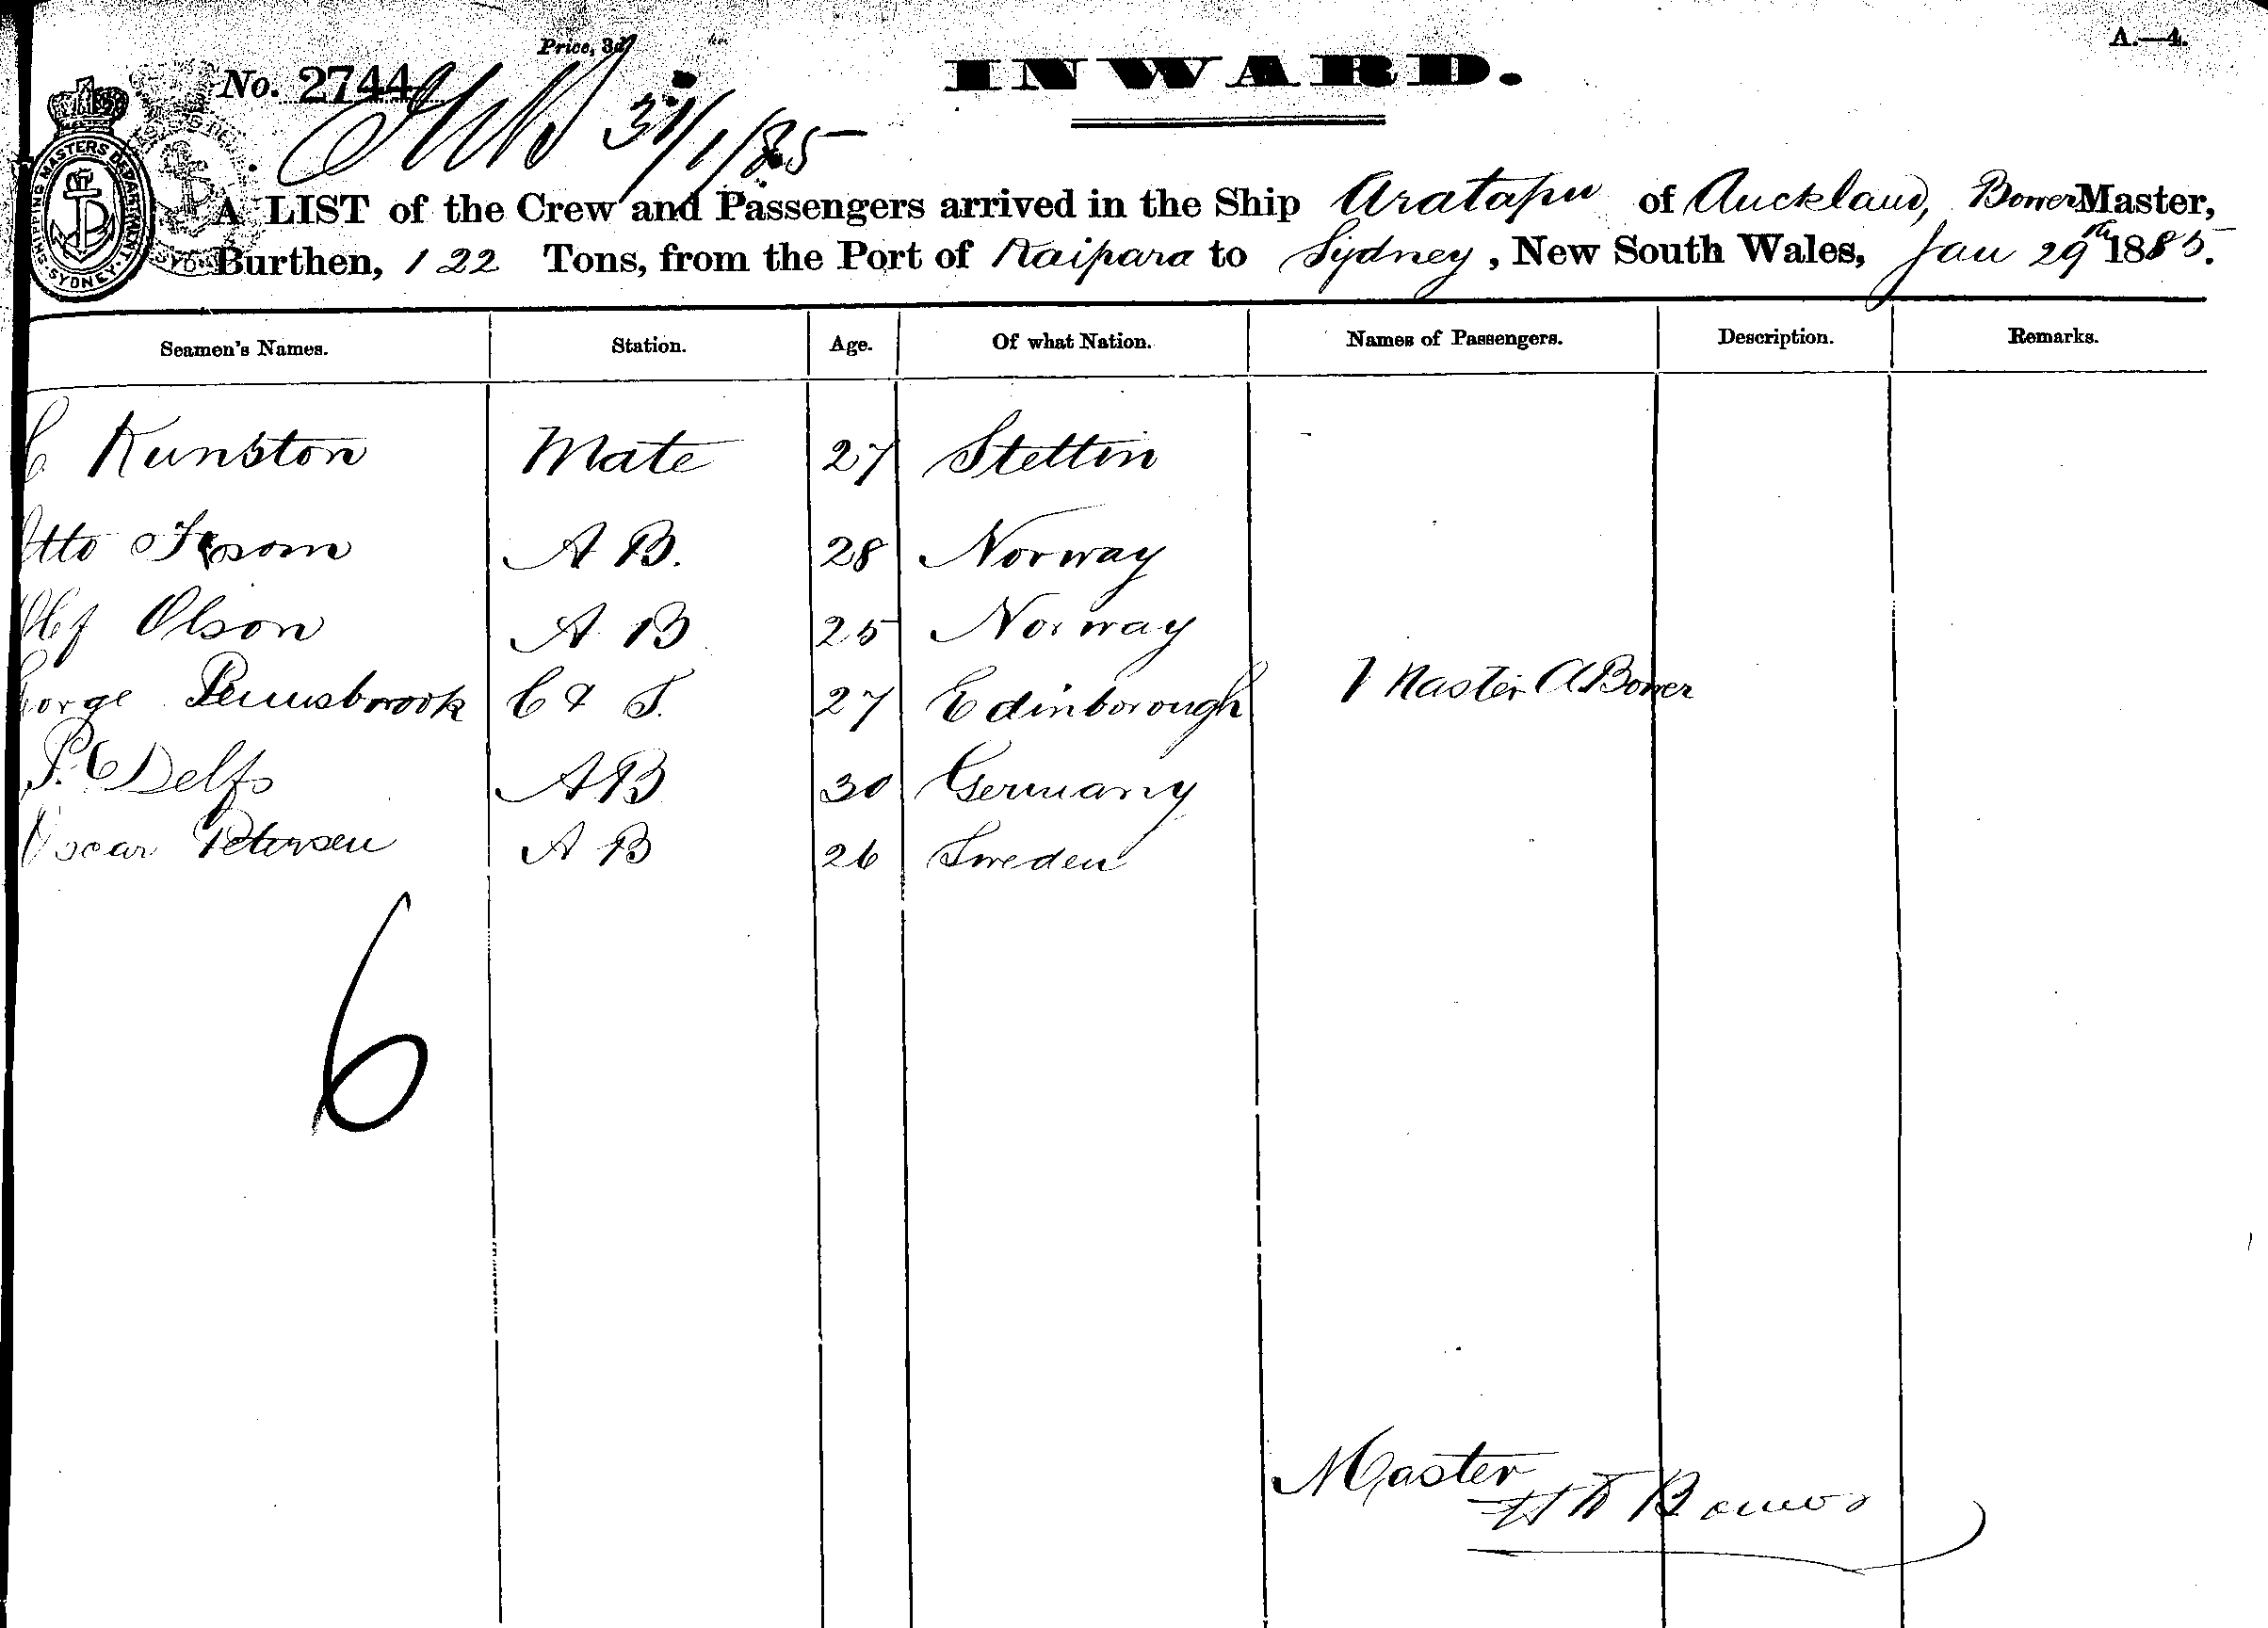 Price, 3d
A.—4.
No. 2744
INWARD.
31/1/85
SHIPPING MASTERS DEPARTMENT SYDNEY
A LIST of the Crew and Passengers arrived in the Ship Aratapu of Auckland, Bower Master,
Burthen, 122 Tons, from the Port of Kaipara to Sydney, New South Wales, Jan 29th 1885.
Seamen's Names. Station. Age. Of what Nation. Names of Passengers. Description. Remarks.
C Kunston Mate 27 Stettin
Otto A B. 28 Norway
Olef Olson A B 25 Norway
George C & S. 27 Edinborough 1 Master A Bower
P. C Delfs A B 30 Germany
Oscar Petersen A B 26 Sweden
6
Master